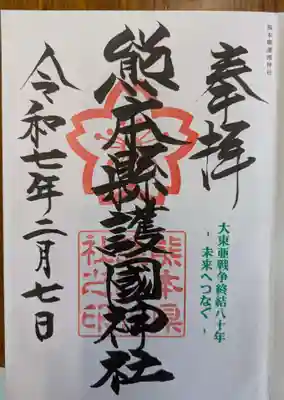 熊本縣護國神社
奉拝
大東亜戦争終結八十年
- 未来へつなぐ -
熊本縣護國神社
熊本県
護国神
社之印
令和七年二月七日